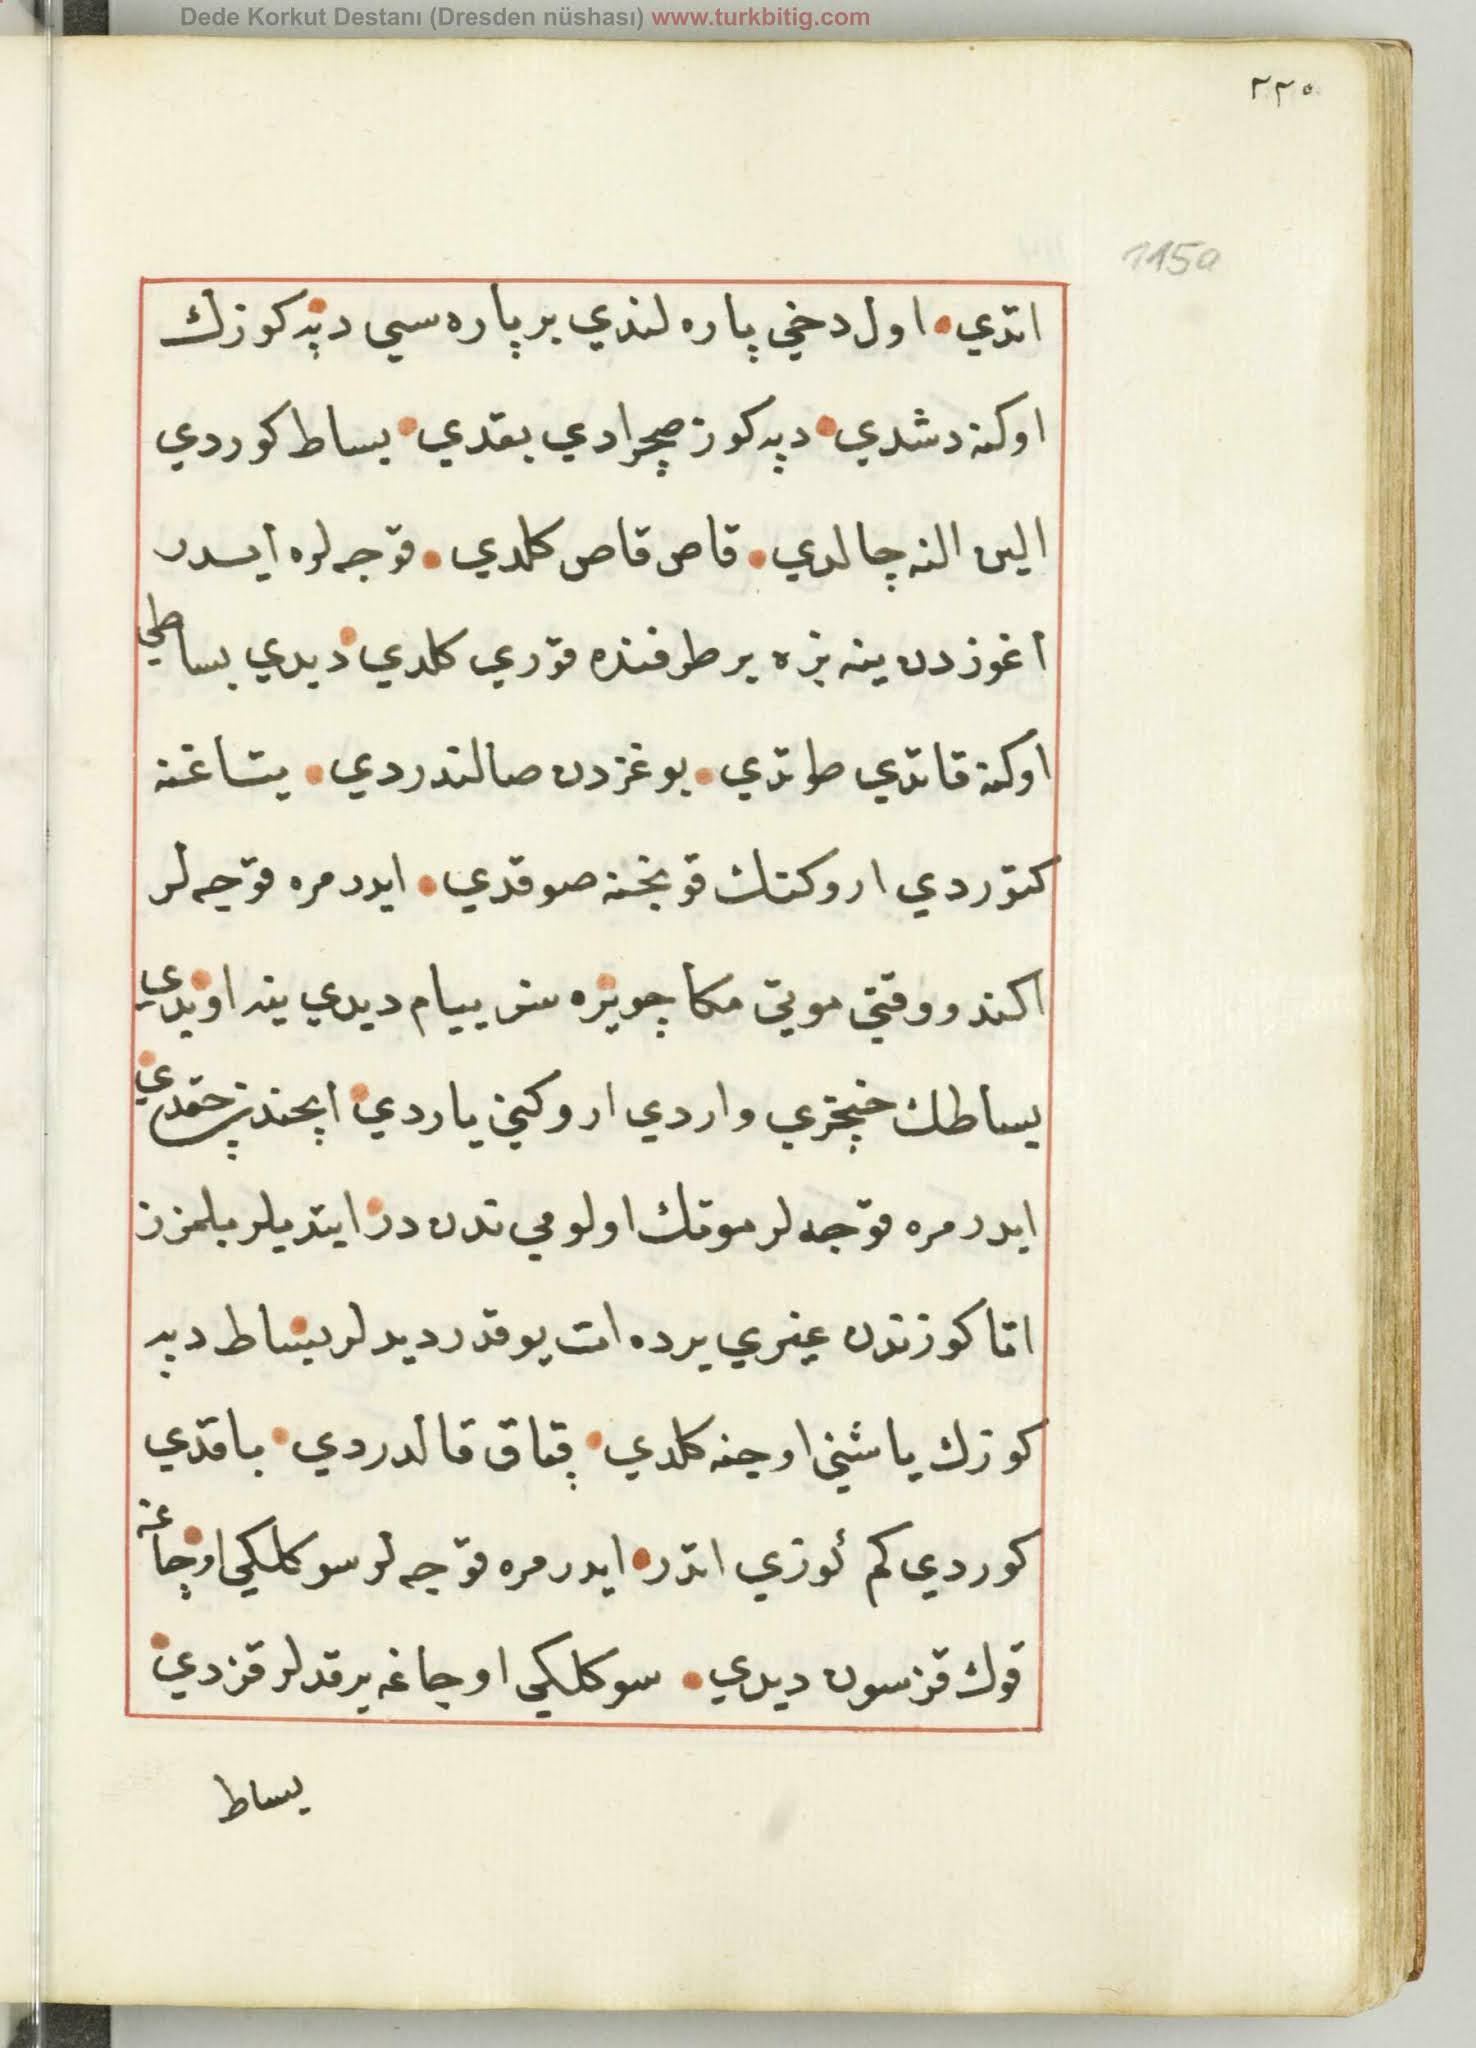 Dede Korkut Destanı (Dresden nüshası) www.turkbitig.com
٢٢٥
115a
اتدي اول دخي پاره لندي بر پاره سي دپه كوزك
اوكنه دشدي دپه كوز صچرادي بقدي بساط كوردي
الين النه چالدي قاص قاص كلدي قوجه لره ايدر
اغوزدن ينه بزه بر طرفنده قوزي كلدي ديدي بساطي
اوكنه قاتدي طوتدي بوغزدن صالندردي يتاغنه
كتوردي اروكتك قونجنه صوقدي ايدر مره قوجه لر
اكندو وقتي موني مكا چويره سز ييام ديدي ينه اويدي
بساطك خنچري واردي اروكني ياردي اچندن چقدي
ايدر مره قوجه لر مونك اولومي ندن در ايتديلر بلمزز
اما كوزندن غيري يرده ات يوقدر ديدلر بساط دپه
كوزك ياشني اوجنه كلدي قپاق قالدردي باقدي
كوردي كم كوزي اتدر ايدر مره قوجه لر سوكلكي اوچاغه
قوك قزسون ديدي سوكلكي اوجاغه برقدلر قزدي
بساط